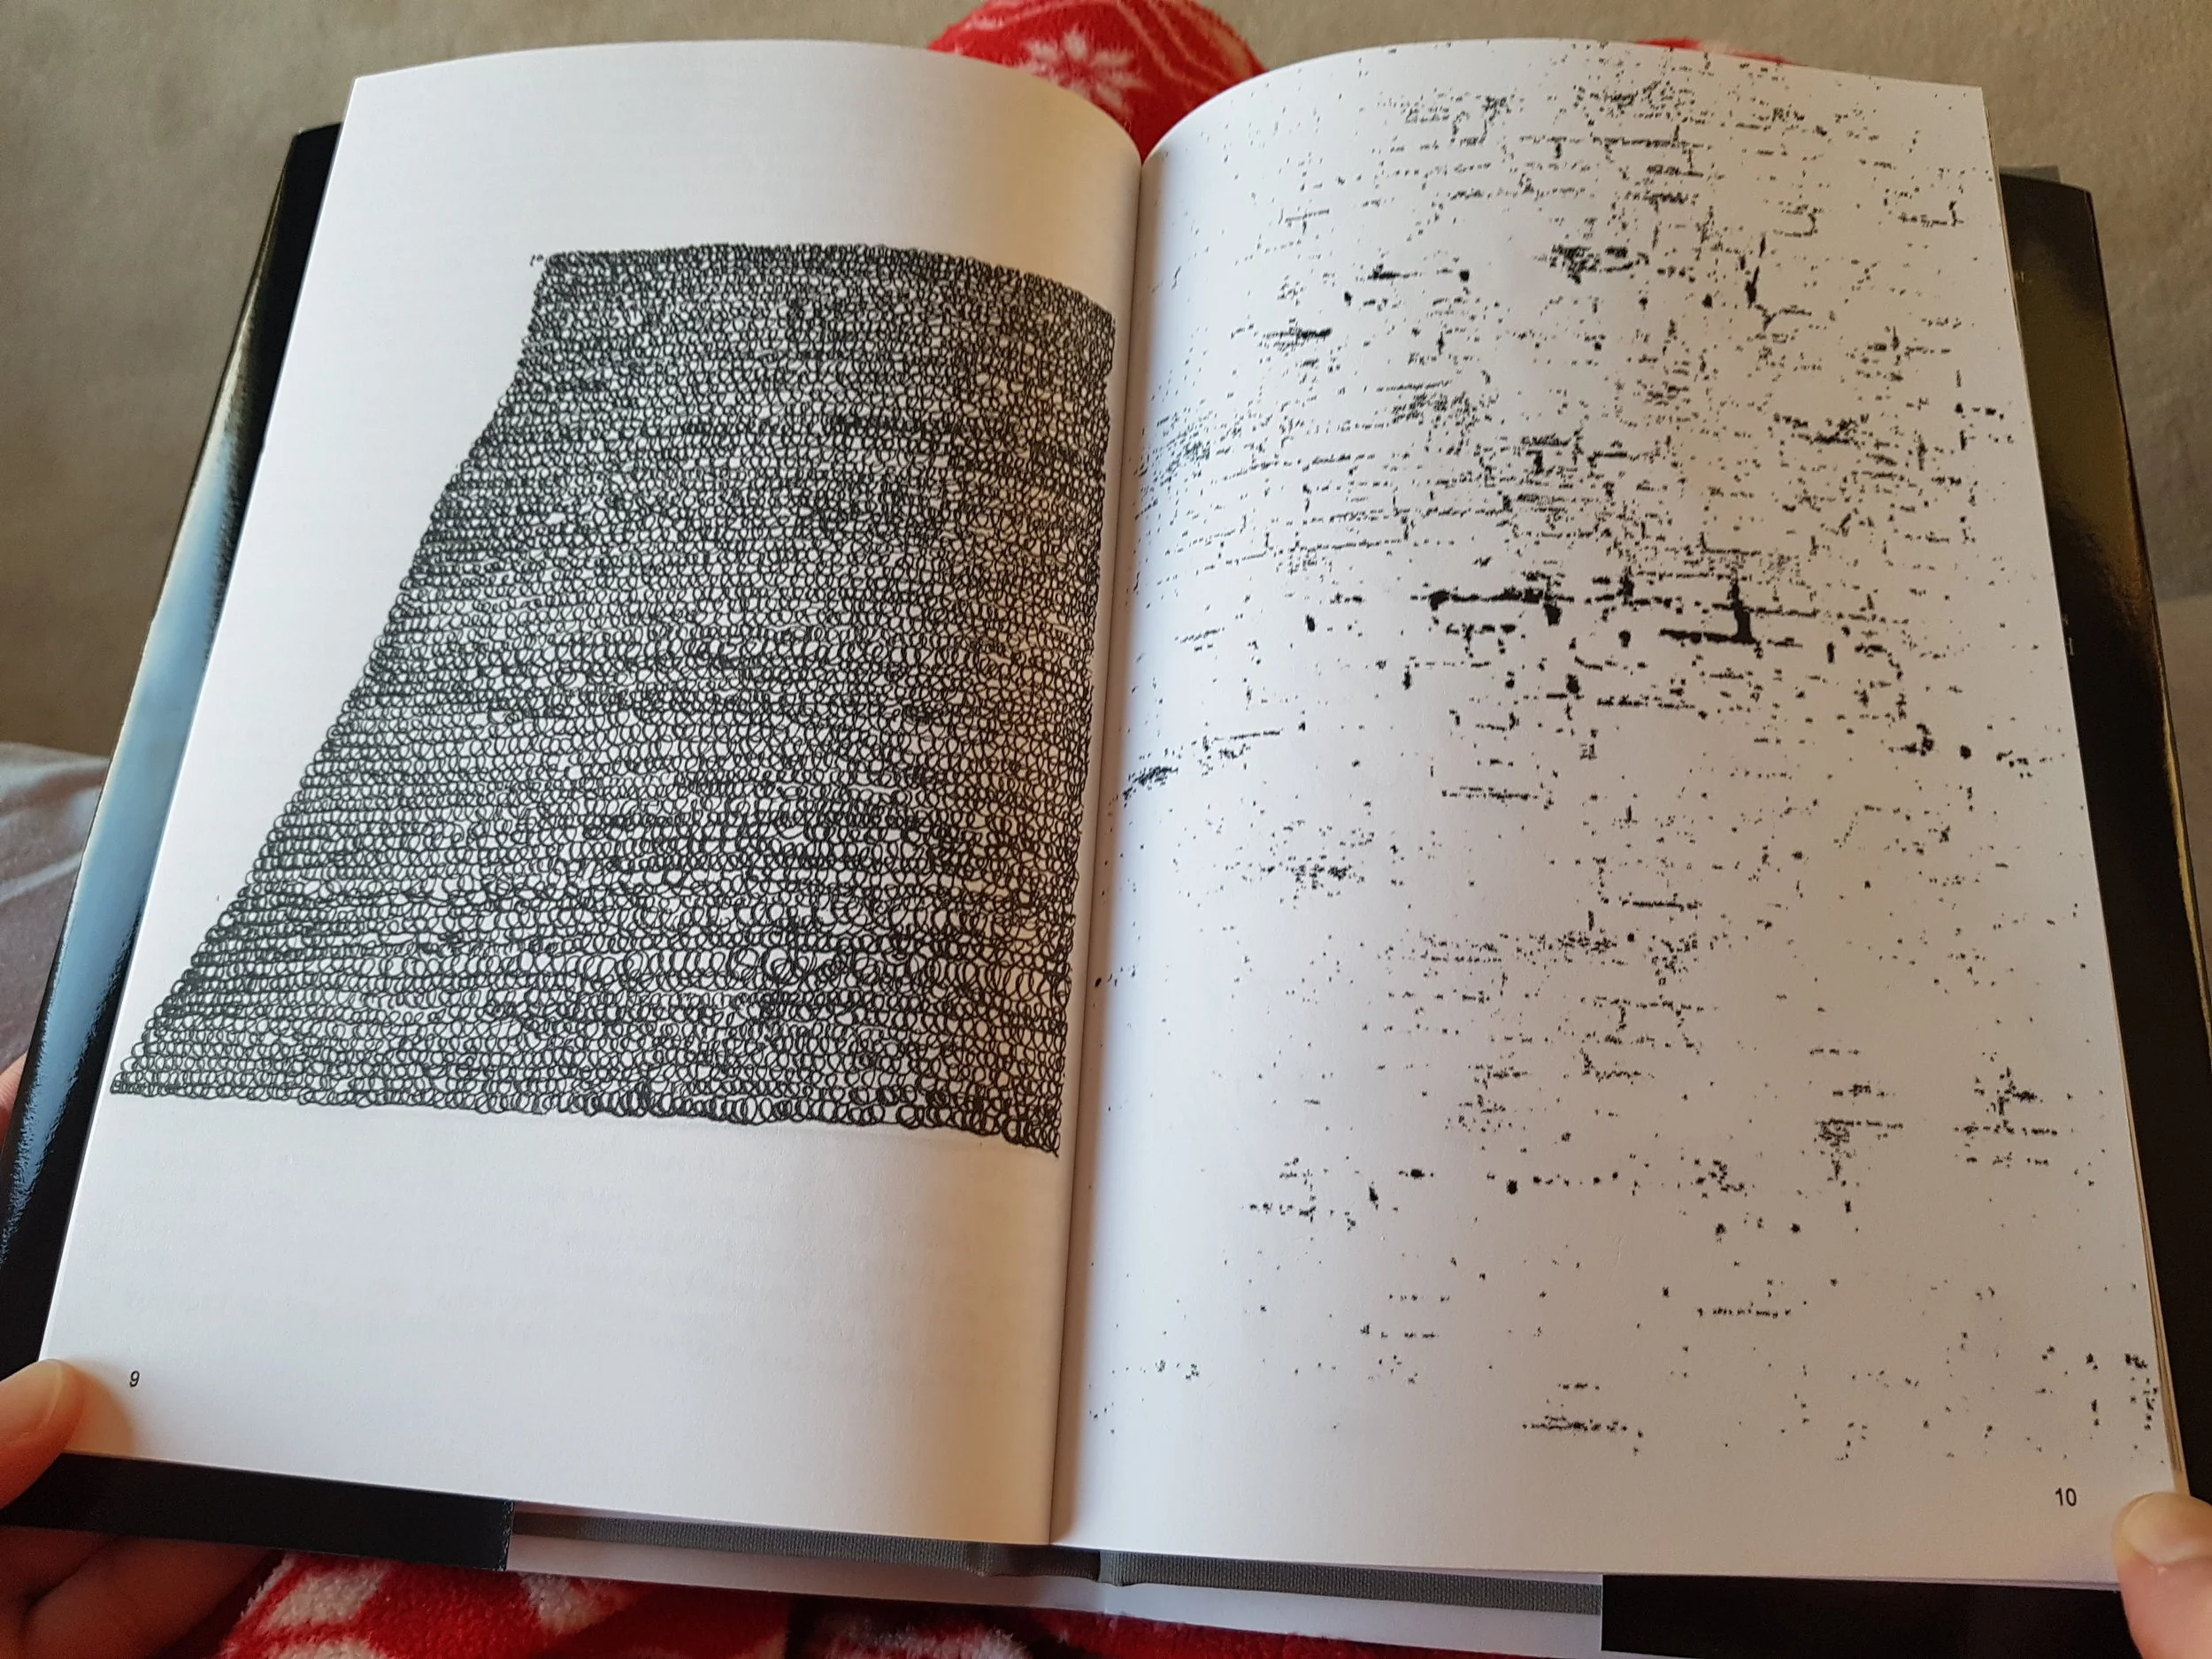 9
10